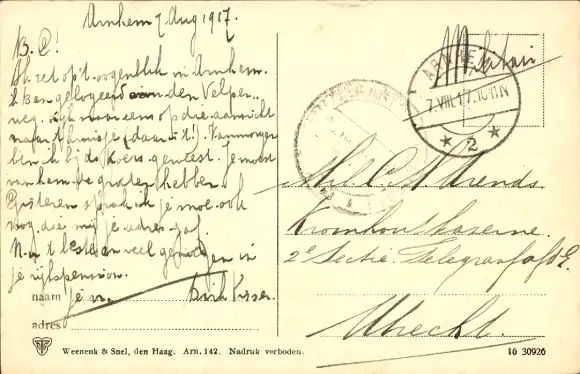 Arnhem 7 Aug 1917.
B. C!
Ik zet op 't oogenblik in Arnhem.
Ik ben gelogeerd aan den Velper
weg. Kijk maar eens op die aanzicht
naar 't huisje (daar is 't!). Vanmorgen
ben ik bij de Koers geweest. Je moest
van hem de groeten hebben.
Gisteren sprak ik je moe ook
nog die mij je adres gaf.
N. a 't beste en veel genoegen in
je rijkspension.
naam Je vr. Dirk
adres
Militair
ARNHEM
7.VIII.17.10-11N
2
Mil. C
Kromhoutkazerne
2e Sectie Telegraafafd.
Utrecht.
Weenenk & Snel, den Haag. Arn. 142. Nadruk verboden.
16 30926